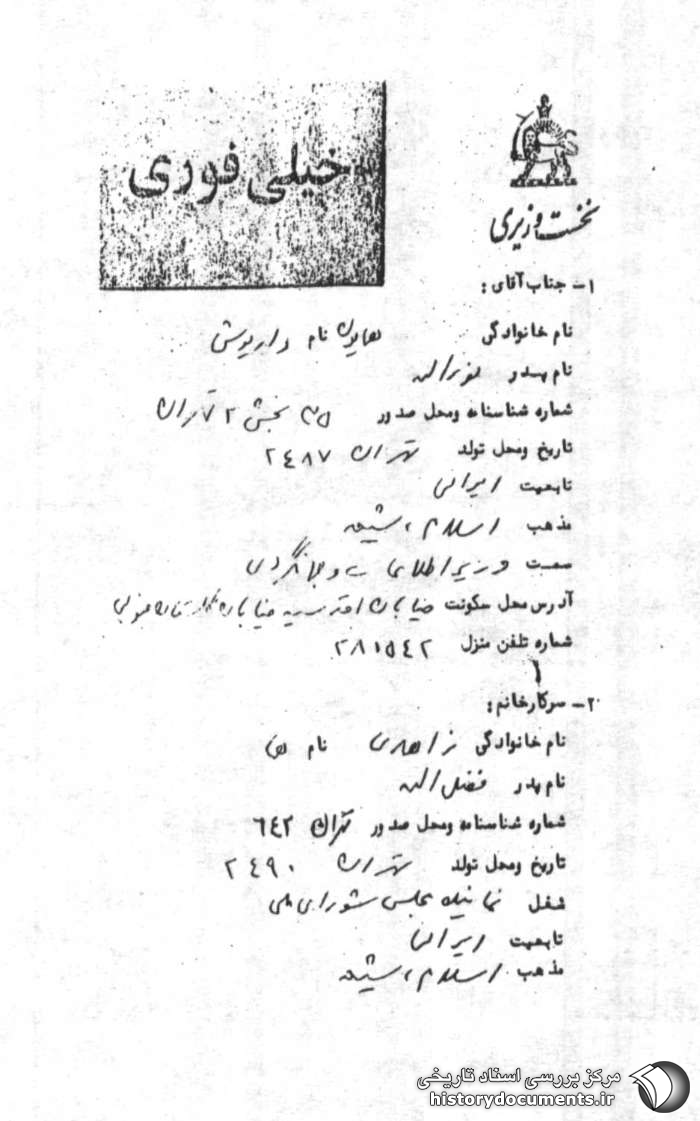 خیلی فوری
نخست وزیری
۱- جناب آقای :
نام خانوادگی همایون نام داریوش
نام پدر نورالله
شماره شناسنامه ومحل صدور بخش ۲ تهران
تاریخ ومحل تولد تهران ۲۴۸۷
تابعیت ایرانی
مذهب اسلام، شیعه
سمت وزیر اطلاعات و جهانگردی
آدرس محل سکونت خیابان اقدسیه خیابان گلستان جنوبی
شماره تلفن منزل ۲۸۱۵۴۲
۲- سرکار خانم :
نام خانوادگی زاهدی نام هما
نام پدر فضل الله
شماره شناسنامه ومحل صدور تهران ۶۴۲
تاریخ ومحل تولد تهران ۲۴۹۰
شغل نماینده مجلس شورای ملی
تابعیت ایرانی
مذهب اسلام، شیعه
مرکز بررسی اسناد تاریخی
historydocuments.ir